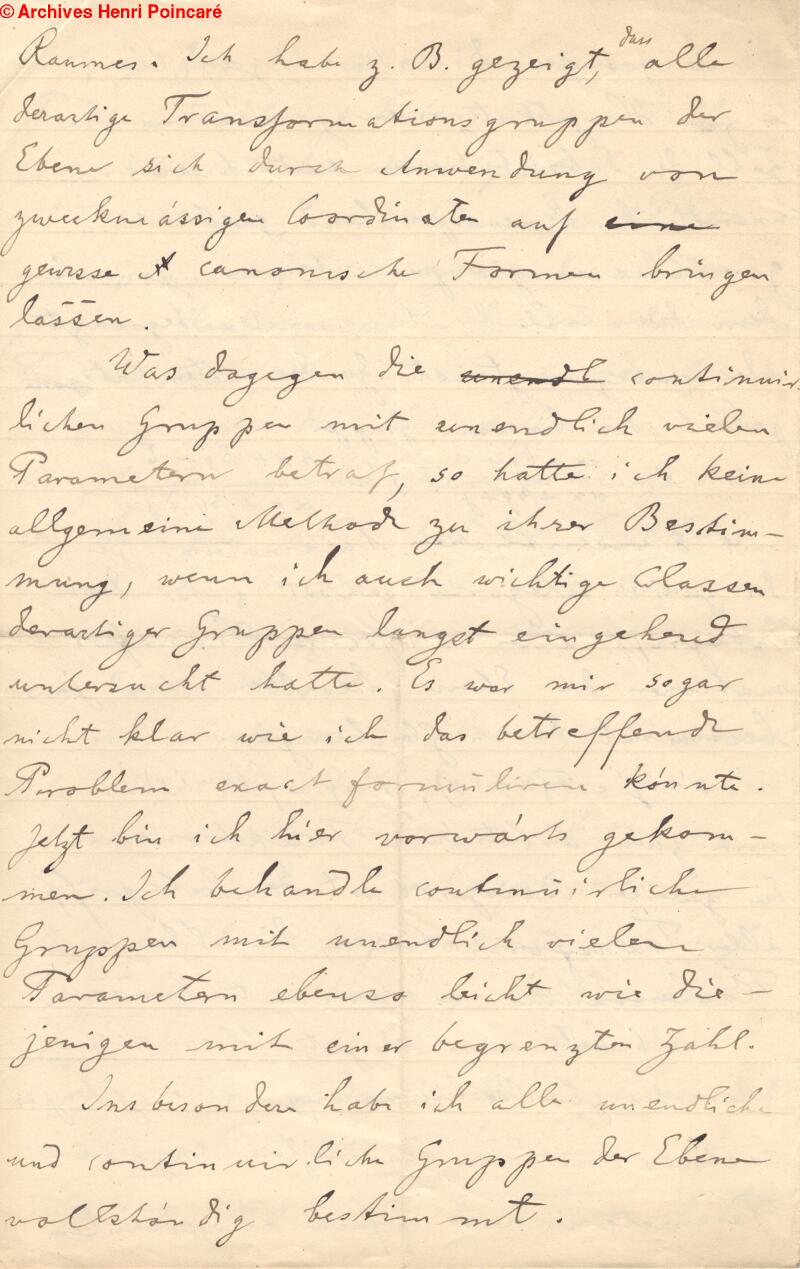 © Archives Henri Poincaré
Raumes. Ich habe z. B. gezeigt, dass alle
derartige Transformationsgruppen der
Ebene sich durch Anwendung von
zweckmässigen Coordinaten auf eine
gewisse canonische Formen bringen
lassen.
Was dagegen die unendl continuir-
lichen Gruppen mit unendlich vielen
Parametern betraf, so hatte ich keine
allgemeine Methode zu ihrer Bestim-
mung, wenn ich auch wichtige Classen
derartiger Gruppen langst eingehend
untersucht hatte. Es war mir sogar
nicht klar wie ich das betreffende
Problem exact formuliren könnte.
Jetzt bin ich hier vorwärts gekom-
men. Ich behandle continuirliche
Gruppen mit unendlich vielen
Parametern ebenso leicht wie die-
jenigen mit einer begrenzten Zahl.
Insbesondere habe ich alle unendliche
und continuirliche Gruppen der Ebene
vollständig bestimmt.